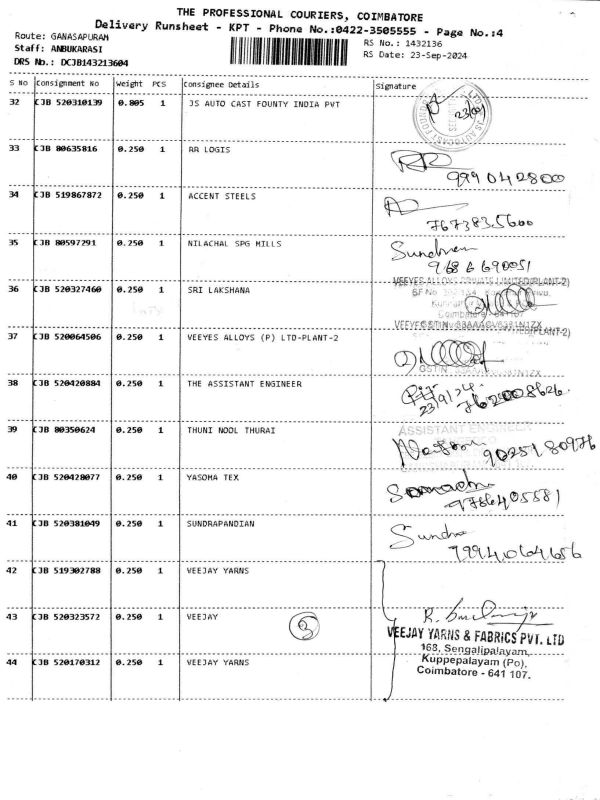 THE PROFESSIONAL COURIERS, COIMBATORE
Delivery Runsheet - KPT - Phone No.:0422-3505555 - Page No.:4
Route: GANASAPURAM RS No.: 1432136
Staff: ANBUKARASI RS Date: 23-Sep-2024
DRS No.: DCJB143213604
S No Consignment No Weight PCS Consignee Details Signature
32 CJB 520310139 0.805 1 JS AUTO CAST FOUNTY INDIA PVT
33 CJB 80635816 0.250 1 RR LOGIS RR
9991042800
34 CJB 519867872 0.250 1 ACCENT STEELS
7673835600
35 CJB 80597291 0.250 1 NILACHAL SPG MILLS
9686690051
VEEYES ALLOYS PRIVATE LIMITED(PLANT-2)
36 CJB 520327460 0.250 1 SRI LAKSHANA
Coimbatore - 641107
37 CJB 520064506 0.250 1 VEEYES ALLOYS (P) LTD-PLANT-2
38 CJB 520420884 0.250 1 THE ASSISTANT ENGINEER
23/9/24
ASSISTANT ENGINEER
39 CJB 80350624 0.250 1 THUNI NOOL THURAI
9025180976
40 CJB 520428077 0.250 1 YASOMA TEX
9786405581
41 CJB 520381049 0.250 1 SUNDRAPANDIAN Sundra
7994064656
42 CJB 519302788 0.250 1 VEEJAY YARNS
43 CJB 520323572 0.250 1 VEEJAY 3
VEEJAY YARNS & FABRICS PVT. LTD
168, Sengalipalayam,
44 CJB 520170312 0.250 1 VEEJAY YARNS Kuppepalayam (Po),
Coimbatore - 641 107.